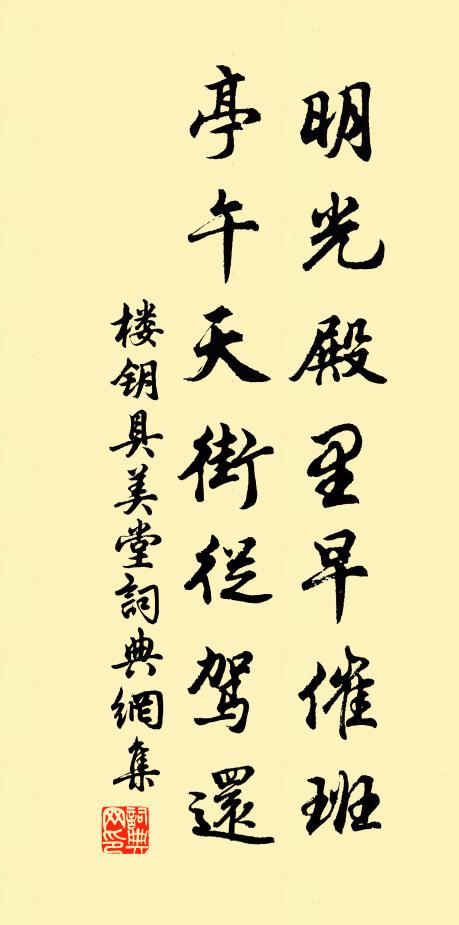 明光殿里早催班
亭午天街從駕還
楼钥具美堂詞典網集
詞典网印